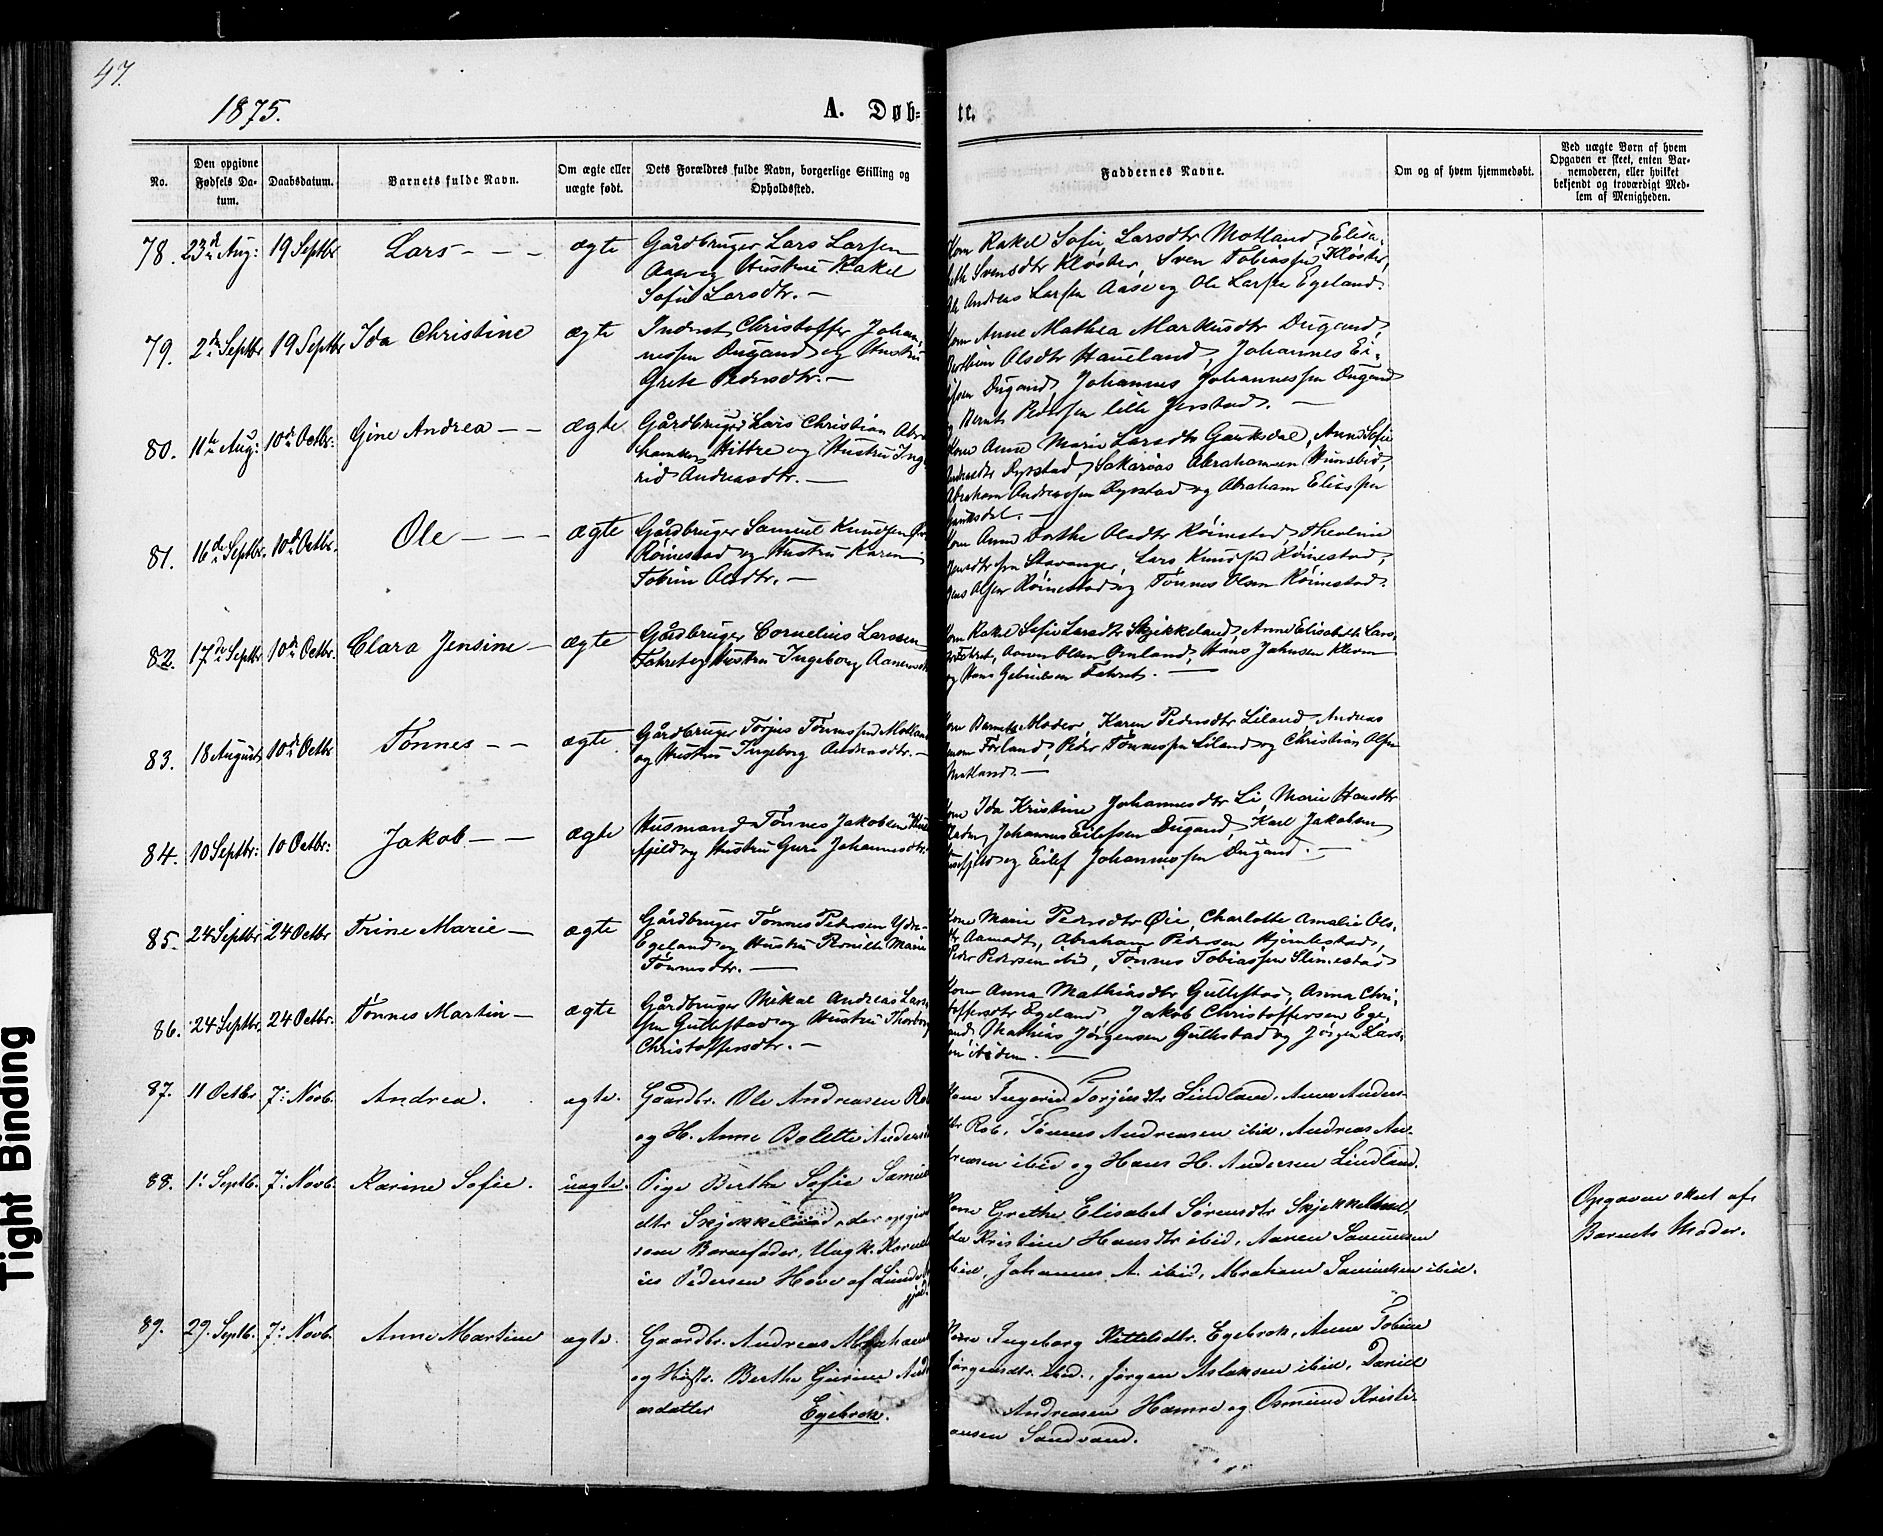 47.
1875.
A. Døb-
te.
No.
Den opgivne Fødsels Datum.
Daabsdatum.
Barnets fulde Navn.
Om ægte eller uægte født.
Dets Forældres fulde Navn, borgerlige Stilling og Opholdssted.
Faddernes Navne.
Om og af hvem hjemmedøbt.
Ved uægte Børn af hvem Opgaven er skeet, enten Barnemoderen, eller hvilket bekjendt og troværdigt Medlem af Menigheden.
78. 23de Aug: 19 Septbr Lars - - - ægte
Gårdbruger Lars Larsen
Aase og Hustru Rakel
Sofie Larsdtr. -
Kone Rakel Sofie Larsdtr Motland, Elisa-
beth Svensdtr Kløster, Sven Tobiassen Kløster,
Andreas Larsen Aase og Ole Larsen Egeland.
79. 2den Septbr 19 Septbr Ida Christine ægte
Inderst Christoffer Johan-
nessen Dugand og Hustru
Grete Pedersdtr. -
Kone Anne Mathea Markusdtr Dugand,
Olsdtr Haueland, Johannes Ei-
Dugand, Johannes Johannessen Dugand
og Bernt Pedersen lille Jerstad. -
80. 11te Aug: 10de Octbr. Gine Andrea - - ægte
Gårdbruger Lars Christian Abra
hamsen Hittre og Hustru Inge
rid Andreasdtr. -
Kone Anne Marie Larsdtr Gauksdal, Anne Sofie
Andreasdtr Dyrstad, Sakarias Abrahamsen Hunsbed,
Abraham Andreassen Dyrstad og Abraham Eliassen
Gauksdal. -
81. 16de Septbr. 10de Octbr. Ole - - - ægte
Gårdbruger Samuel Knudsen
Röinestad og Hustru Karen
Tobine Olsdtr. -
Kone Anne Dorthe Olsdtr Röinestad, Theoline
Jensdtr fra Stavanger, Lars Knudsen Röinestad,
Jens Olsen Röinestad og Tönnes Olsen Röinestad.
82. 17de Septbr 10de Octbr. Clara Jensine - ægte
Gårdbruger Cornelius Larssen
Fahret og Hustru Ingeborg Aanensd
Kone Rakel Sofie Larsdtr Skjekkeland, Anne Elisabeth Lars-
dtr Fahret, Aanen Olsen Omland, Hans Jahnsen Kleven
og Hans Gabrielsen Fahret. -
83. 18 August 10de Octbr Tönnes - - ægte
Gårdbruger Torjus Tönnessen Motland
og Hustru Ingeborg Andreasdtr. -
Kone Barnets Moder, Karen Pedersdtr Liland, Andreas
Förland, Peder Tönnessen Liland og Christian Olsen
Motland. -
84. 10 Septbr: 10 Octbr: Jakob - - ægte
Husmand Tönnes Jakobsen Huse
fjeld og Hustru Guri Johannesdtr.
Kone Ida Kristine Johannesdtr Li, Marie Hansdtr
Johannes Eilefsen Dugand, Karl Jakobsen
Husefjeld og Eilef Johannessen Dugand. -
85. 24 Septbr 24 Octbr Trine Marie - ægte
Gårdbruger Tönnes Pedersen Ydre-
Egeland og Hustru Pernille Marie
Tönnesdtr. -
Kone Marie Pedersdtr Øie, Charlotte Amalie Ols-
dtr Aamodt, Abraham Pedersen Hjemlestad,
Peder Pedersen ibid, Tönnes Tobiassen Slimestad
86. 24 Septbr. 24 Octbr. Tönnes Martin - ægte
Gårdbruger Mikal Andreas Lar-
sen Gullestad og Hustru Thorborg
Christoffersdtr. -
Kone Anna Mathiasdtr Gullestad, Anna Chri-
stoffersdtr Egeland, Jakob Christoffersen Ege-
land, Mathias Jörgensen Gullestad og Jörgen Lars-
sen ibidem. -
87. 11 Octbr 7: Novb. Andrea. ægte.
Gaardbr. Ole Andreasen Rob
og H. Anne Bolette Anders
Kone Ingerid Torjusdtr Lindland, Anne Anders-
dtr Rob, Tönnes Andreasen ibid. Andreas An-
dreasen ibid og Hans H. Andersen Lindland.
88. 1: Septb. 7: Novb. Karine Sofie. uægte.
Pige Berthe Sofie Samuels
dtr Skjekkeland, der opgiver
som Barnefader, Ungk. Korneli
us Pedersen Have af
gjeld.
Kone Grethe Elisabet Sörensdtr Skjekkeland
Ida Kristine Hansdtr ibid, Aanen Samuelsen
ibid, Johannes A. ibid, Abraham Samuelsen ibid.
Opgaven skeet af
Barnets Moder.
89. 29. Septb. 7: Novb. Anne Martine ægte.
Gaardbr. Andreas Abraham
og Hustr. Berthe Gurine And
asdatter Egebrok.
Kone Ingeborg Kittelsdtr. Egebrok, Anne Tobine
Jörgensdtr. ibid., Jörgen Aslaksen ibid, Daniel
Andreasen Hamre og Osmund Kristi-
ansen Sandvand.
Tight Binding